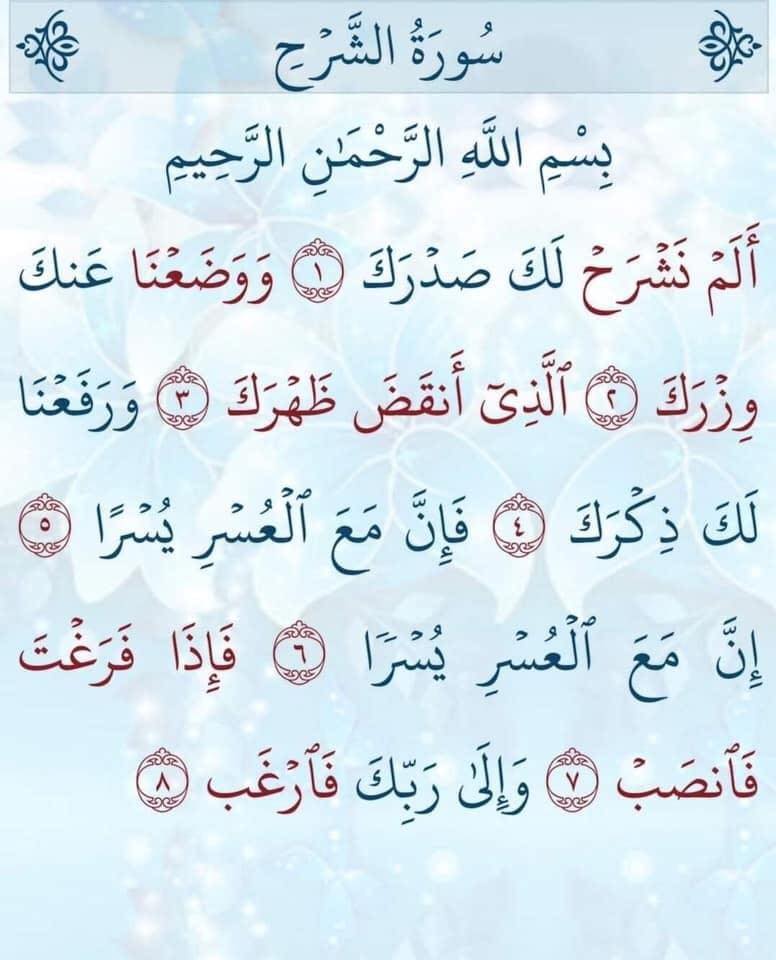 سُورَةُ الشَّرْحِ
بِسْمِ اللَّهِ الرَّحْمَٰنِ الرَّحِيمِ
أَلَمْ نَشْرَحْ لَكَ صَدْرَكَ ١ وَوَضَعْنَا عَنكَ
وِزْرَكَ ٢ ٱلَّذِىٓ أَنقَضَ ظَهْرَكَ ٣ وَرَفَعْنَا
لَكَ ذِكْرَكَ ٤ فَإِنَّ مَعَ ٱلْعُسْرِ يُسْرًا ٥
إِنَّ مَعَ ٱلْعُسْرِ يُسْرًا ٦ فَإِذَا فَرَغْتَ
فَٱنصَبْ ٧ وَإِلَىٰ رَبِّكَ فَٱرْغَب ٨